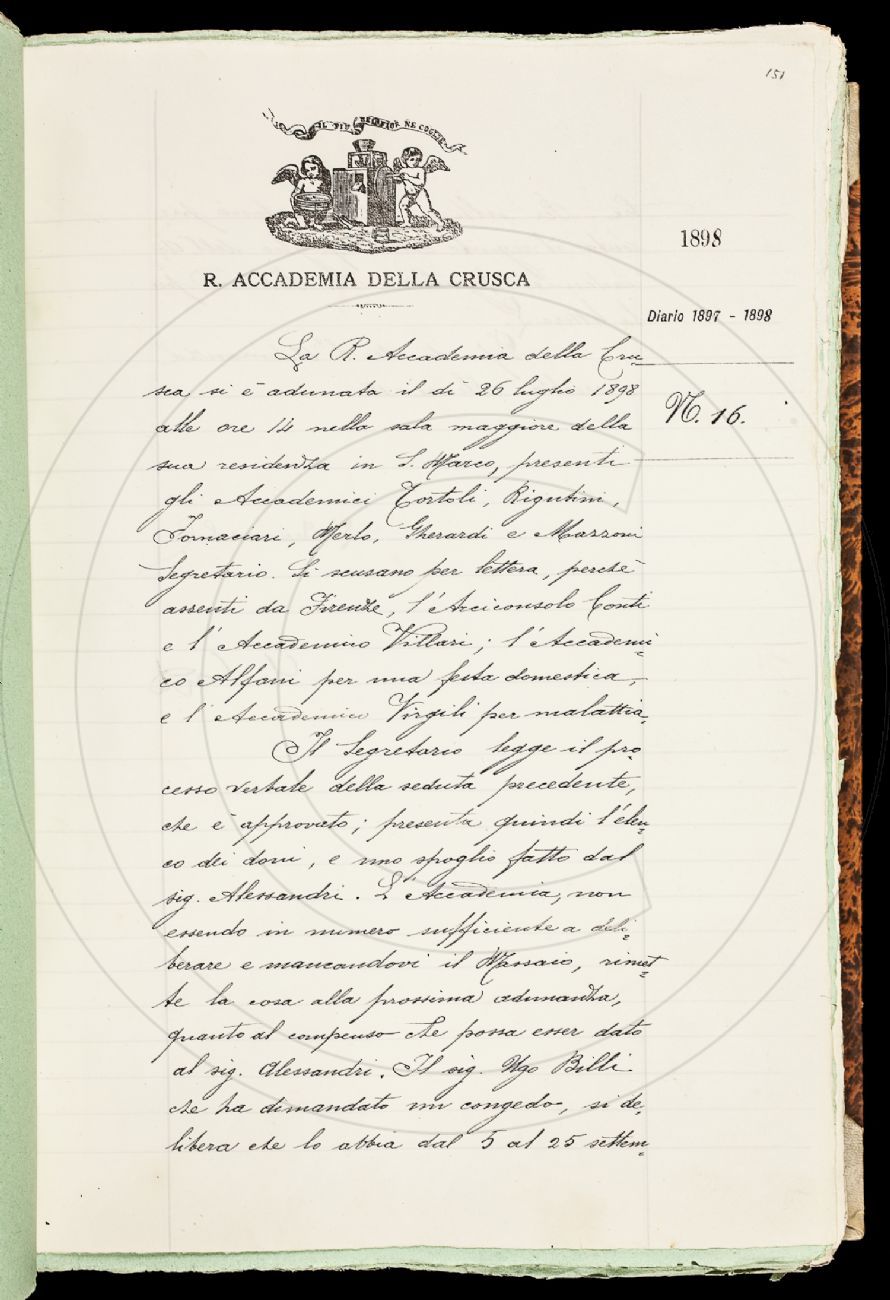 151
IL PIÙ BEL FIOR NE COGLIE
1898
R. ACCADEMIA DELLA CRUSCA
Diario 1897 - 1898
N. 16.
La R. Accademia della Cru-
sca si è adunata il dì 26 luglio 1898
alle ore 14 nella sala maggiore della
sua residenza in S. Marco, presenti
gli Accademici Tortoli, Rigutini,
Fornaciari, Merlo, Gherardi e Mazzoni
Segretario. Si scusano per lettera, perchè
assenti da Firenze, l'Arciconsolo Conti
e l'Accademico Villari; l'Accademi-
co Alfani per una festa domestica,
e l'Accademico Virgili per malattia.
Il Segretario legge il pro-
cesso verbale della seduta precedente,
che è approvato; presenta quindi l'elen-
co dei doni, e uno spoglio fatto dal
sig. Alessandri. L'Accademia, non
essendo in numero sufficiente a deli-
berare e mancandovi il Massaio, rimet-
te la cosa alla prossima adunanza,
quanto al compenso che possa esser dato
al sig. Alessandri. Il sig. Ugo Billi
che ha dimandato un congedo, si de-
libera che lo abbia dal 5 al 25 settem-